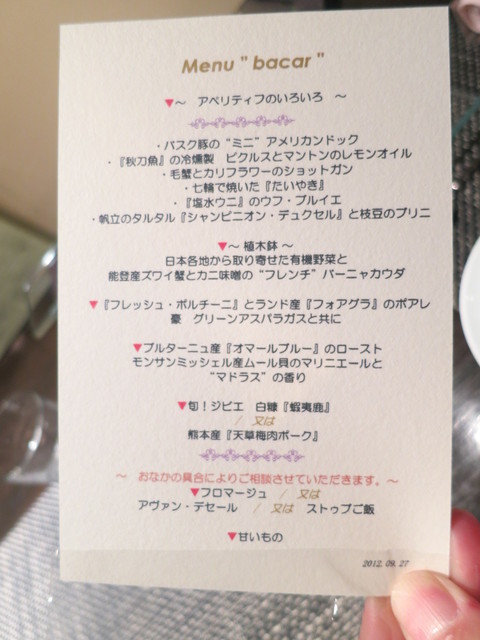 Menu " bacar "
▼～ アペリティフのいろいろ ～
・バスク豚の“ミニ”アメリカンドック
・『秋刀魚』の冷燻製 ピクルスとマントンのレモンオイル
・毛蟹とカリフラワーのショットガン
・七輪で焼いた『たいやき』
・『塩水ウニ』のウフ・ブルイエ
・帆立のタルタル『シャンピニオン・デュクセル』と枝豆のブリニ
▼～ 植木鉢 ～
日本各地から取り寄せた有機野菜と
能登産ズワイ蟹とカニ味噌の“フレンチ”バーニャカウダ
▼『フレッシュ・ポルチーニ』とランド産『フォアグラ』のポアレ
豪 グリーンアスパラガスと共に
▼ブルターニュ産『オマールブルー』のロースト
モンサンミッシェル産ムール貝のマリニエールと
“マドラス”の香り
▼旬！ジビエ 白糠『蝦夷鹿』
/ 又は
熊本産『天草梅肉ポーク』
～ おなかの具合によりご相談させていただきます。～
▼フロマージュ / 又は
アヴァン・デセール / 又は ストゥブご飯
▼甘いもの
2012.09.27